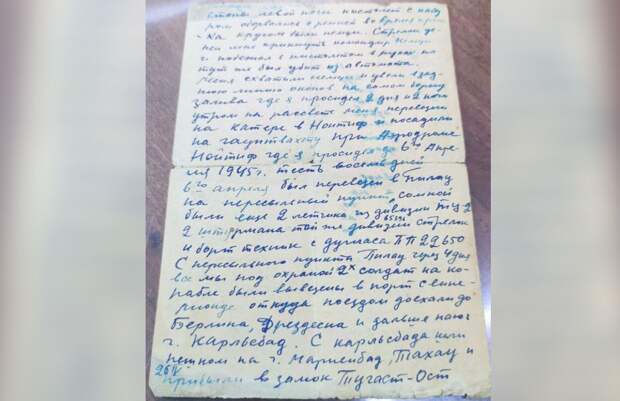 стопа левой ноги пистолет с кабу
ром оборвался о ремней во время
- На кругом были немцы. Стрелки
нел мне крикнуть командир Немцы
г. побежал с пистолетом в руках но
тут же был убит из автомата.
Меня схватили немцы и увели в зад
нюю линию окопов на самом берегу
залива где я просидел 2 дня и 2 ночи
утром на рассвете меня перевезли
на катере в Ноитиф и посадили
на гауптвахту при Аэродроме
Ноитиф где я просидел до 6го Апре
ля 1945г. т.есть восемь дней
6го апреля был перевезен в Пилау
на пересыльный пункт, со мной
были еще 2 летчика из дивизии
2 штурмана той же дивизии стрелок
и борт техник с дугласа ПП 29650
С пересыльного пункта Пилау через 4 дня
все мы под охраной 2х солдат на ко
рабле были вывезены в порт Свине
мюнде откуда поездом доехали до
Берлина, Дрездена и дальше
г. Карльсбад. С карльсбада
пешком на г. Мариенбад, Тахау и
прибыли в замок Тугаст-Ост